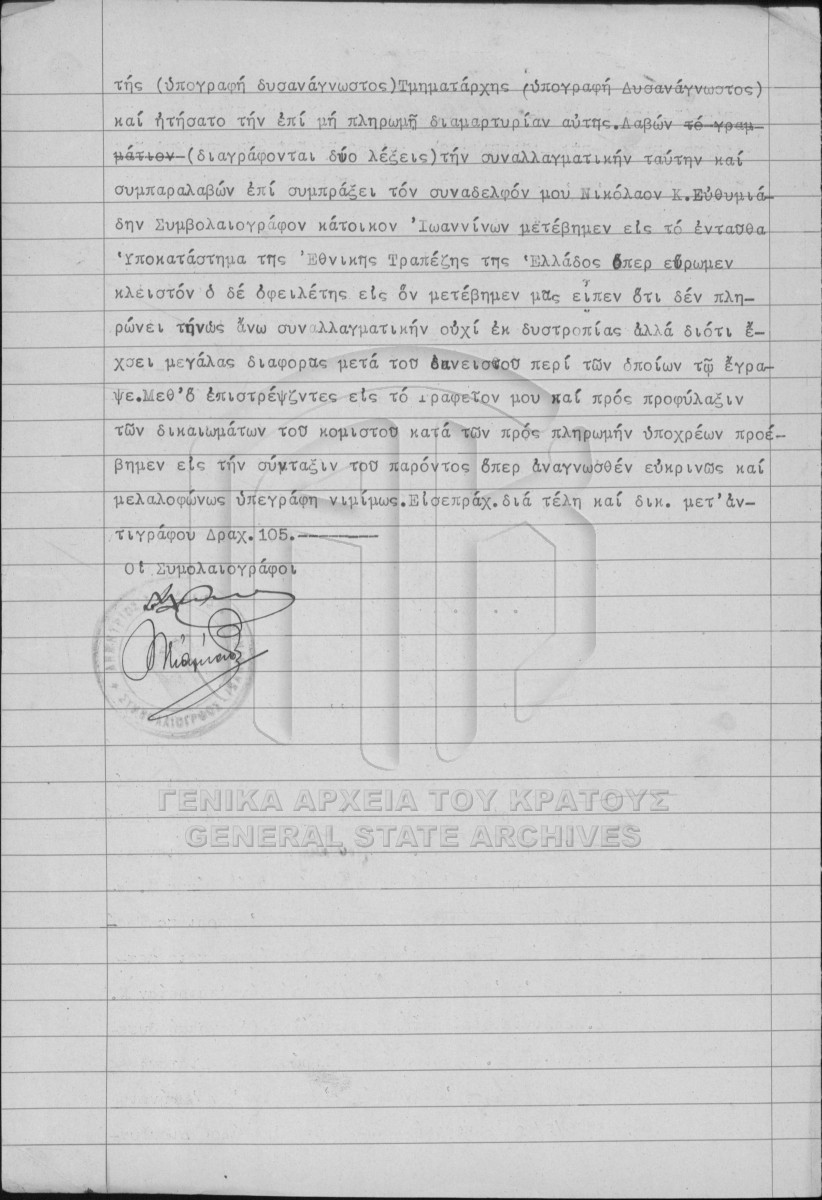 τής (ὑπογραφή δυσανάγνωστος)Τμηματάρχης (ὑπογραφή Δυσανάγνωστος)
καί ἠτήσατο τήν ἐπί μή πληρωμῇ διαμαρτυρίαν αὐτης.Λαβών τό γραμ-
μάτιον-(διαγράφονται δύο λέξεις)τήν συναλλαγματικήν ταύτην καί
συμπαραλαβών ἐπί συμπράξει τόν συναδελφόν μου Νικόλαον Κ.Εὐθυμιά-
δην Συμβολαιογράφον κάτοικον Ἰωαννίνων μετέβημεν εἰς τό ἐνταῦθα
Ὑποκατάστημα της Ἐθνικης Τραπέζης της Ἑλλάδος ὅπερ εὕρωμεν
κλειστόν ὁ δέ ὀφειλέτης εἰς ὅν μετέβημεν μᾶς εἶπεν ὅτι δέν πλη-
ρώνει τήνὡς ἄνω συναλλαγματικήν οὐχί ἐκ δυστροπίας ἀλλά διότι ἔ-
χσει μεγάλας διαφορᾶς μετά τοῦ δανειστοῦ περί τῶν ὁποίων τῷ ἔγρα-
ψε.Μεθ'ὅ ἐπιστρέψζντες εἰς τό Γραφεῖον μου καί πρός προφύλαξιν
τῶν δικαιωμάτων τοῦ κομιστοῦ κατά τῶν πρός πληρωμήν ὑποχρέων προέ-
βημεν εἰς τήν σύνταξιν τοῦ παρόντος ὅπερ ἀναγνωσθέν εὐκρινῶς καί
μελαλοφώνως ὑπεγράφη νιμίμως.Εἰσεπράχ.διά τέλη καί δικ. μετ'ἀν-
τιγράφου Δραχ.105.————
Οἱ Συμολαιογράφοι
ΓΕΝΙΚΑ ΑΡΧΕΙΑ ΤΟΥ ΚΡΑΤΟΥΣ
GENERAL STATE ARCHIVES